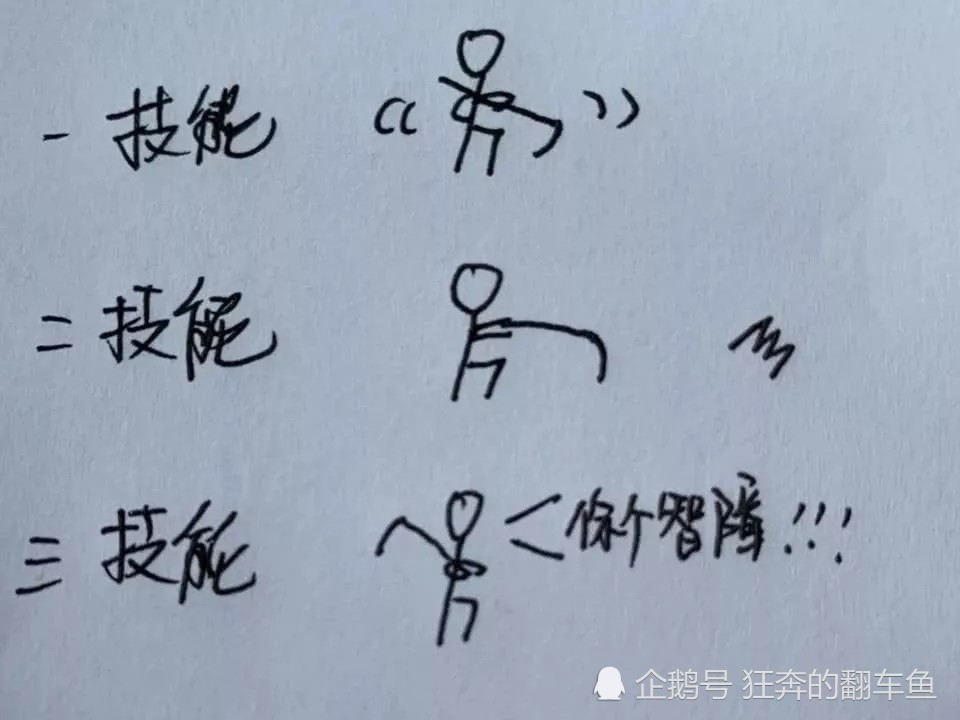 一技能
二技能
三技能 你个智障!!!
企鹅号 狂奔的翻车鱼